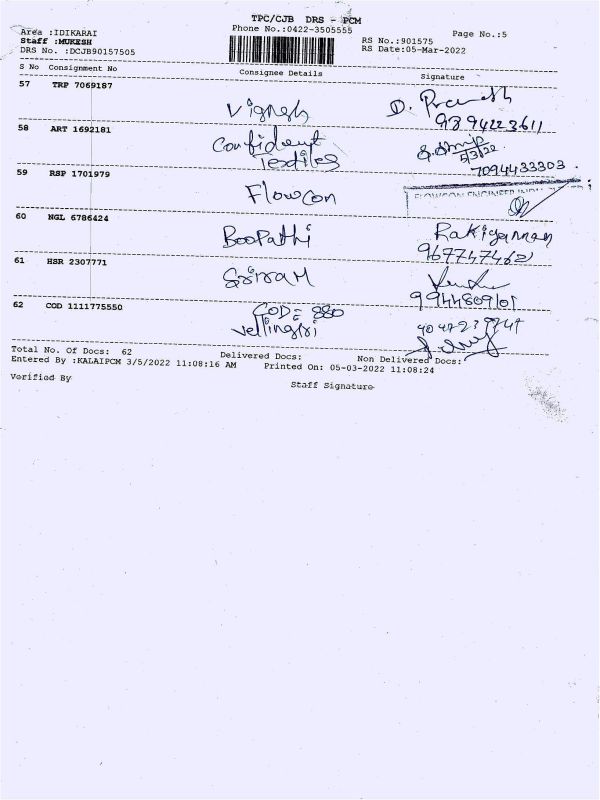 TPC/CJB DRS - PCM
Phone No.:0422-3505555
Page No.:5
Area :IDIKARAI
Staff :MUKESH
DRS No. :DCJB90157505
RS No.:901575
RS Date:05-Mar-2022
S No Consignment No Consignee Details Signature
57 TRP 7069187 Vignesh D. Pramoth
9394223611
58 ART 1692181 Confident
Textiles 5/3/22
7094433303
59 RSP 1701979 Flowcon
FLOWCON ENGINEER
60 NGL 6786424 Boopathi Rakiyannan
9677474621
61 HSR 2307771 Sriram
9944809101
62 COD 1111775550 COD = 880
Vellingiri
Total No. Of Docs: 62 Delivered Docs: Non Delivered Docs:
Entered By :KALAIPCM 3/5/2022 11:08:16 AM Printed On: 05-03-2022 11:08:24
Verified By Staff Signature